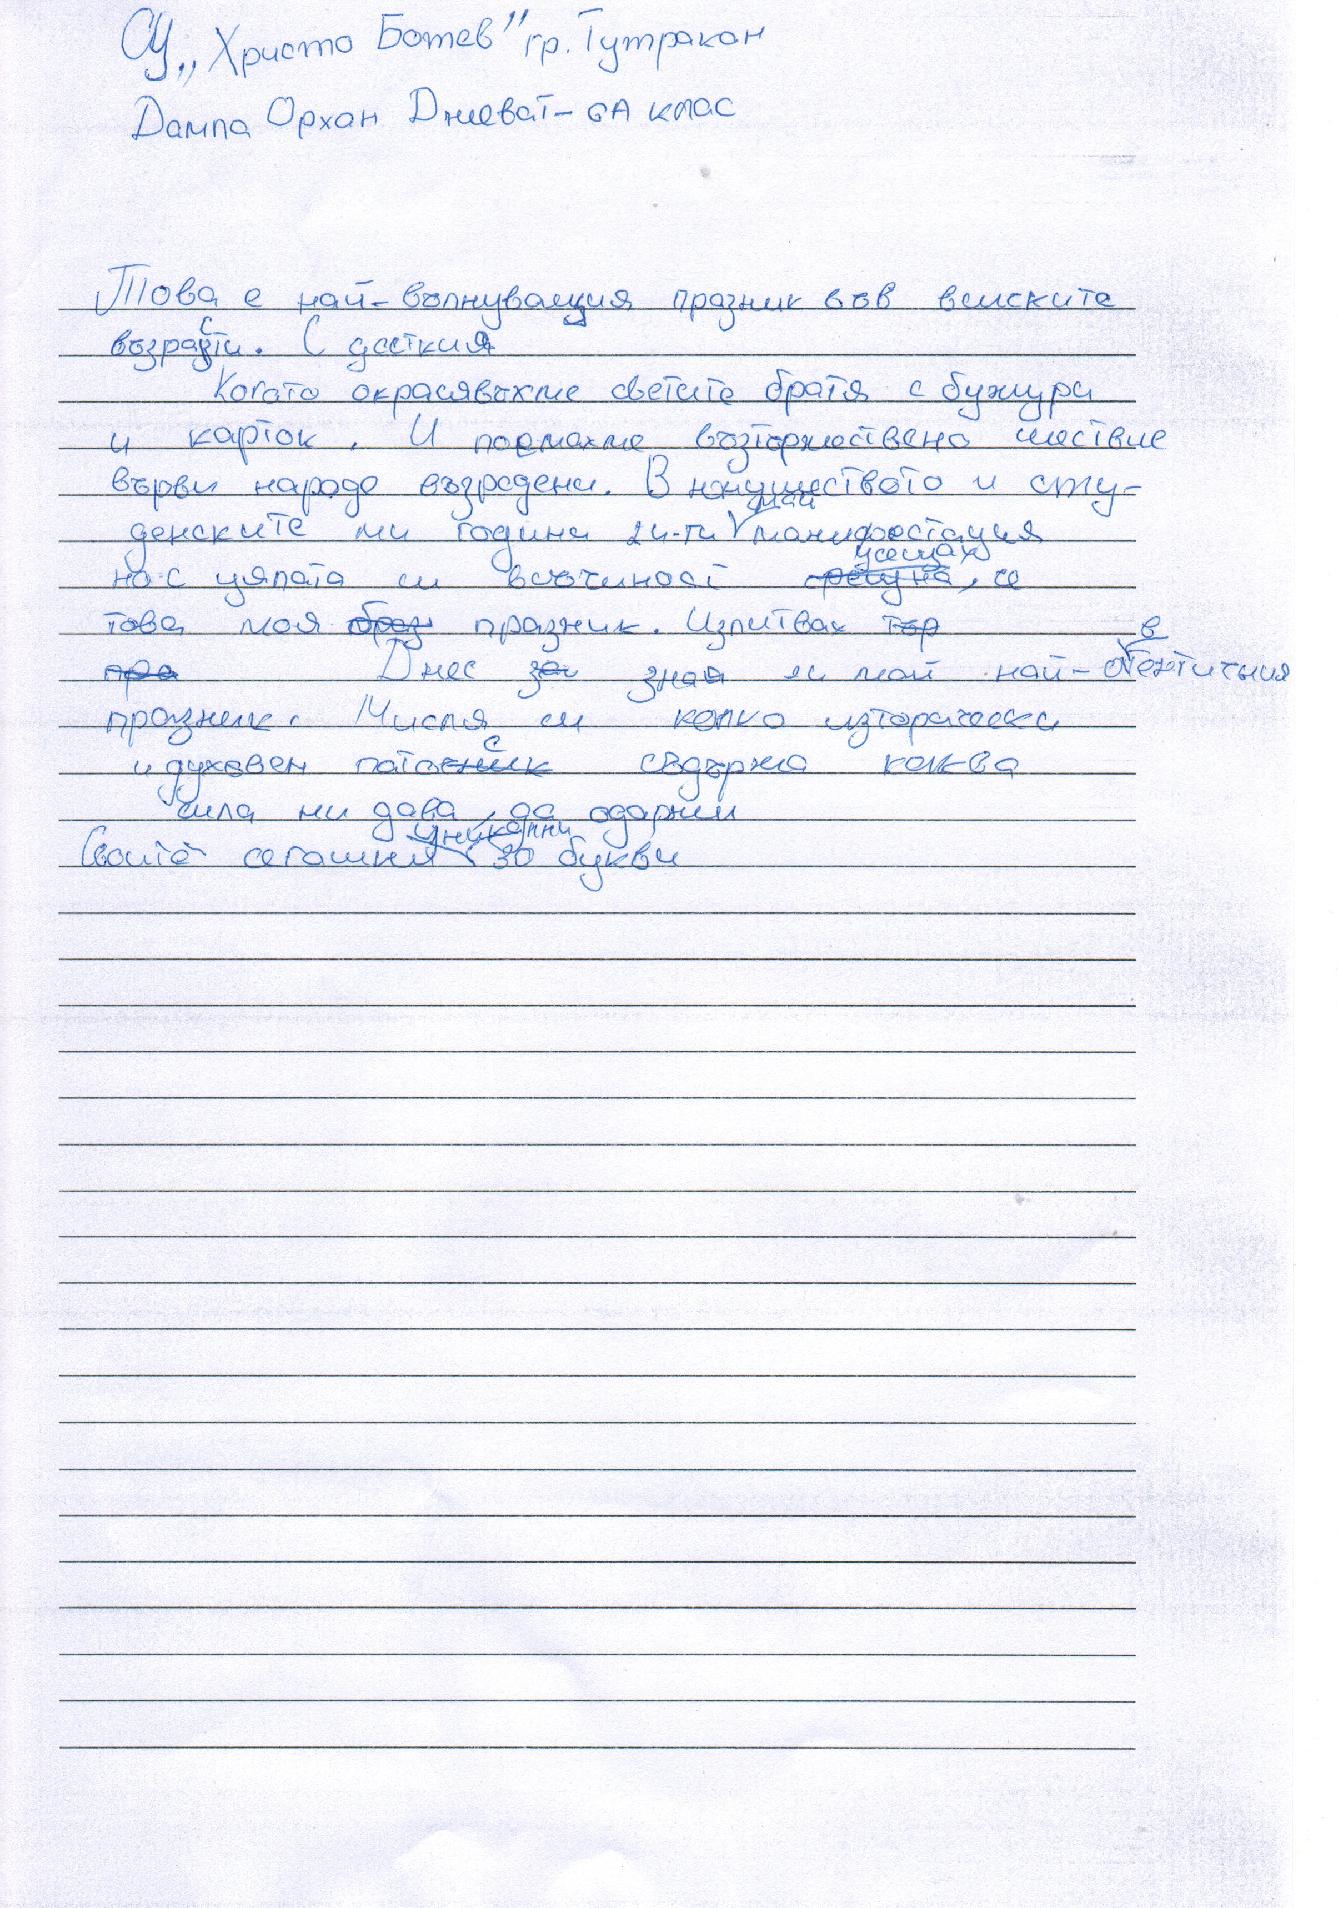 СУ „Христо Ботев" гр. Тутракан
Дамла Орхан Джеват - 6А клас
Това е най-вълнуващия празник във всиските
възрасти. С дсеткия
Когато окрасявъхме светите братя с бужури
и карток. И поемахме възторжествено шествие
върви народе възродени. В юнушеството и сту-
денските ми години 24-ти май манифестация
но с цялата си всъчност усещах, се
това моя празник. Изпитвах
Днес зная че май най-автентичния
празник. Мисля си колко изторически
и духовен потос съдържа каква
сила ни дава, да одарим
Своите сегашния уникални 30 букви